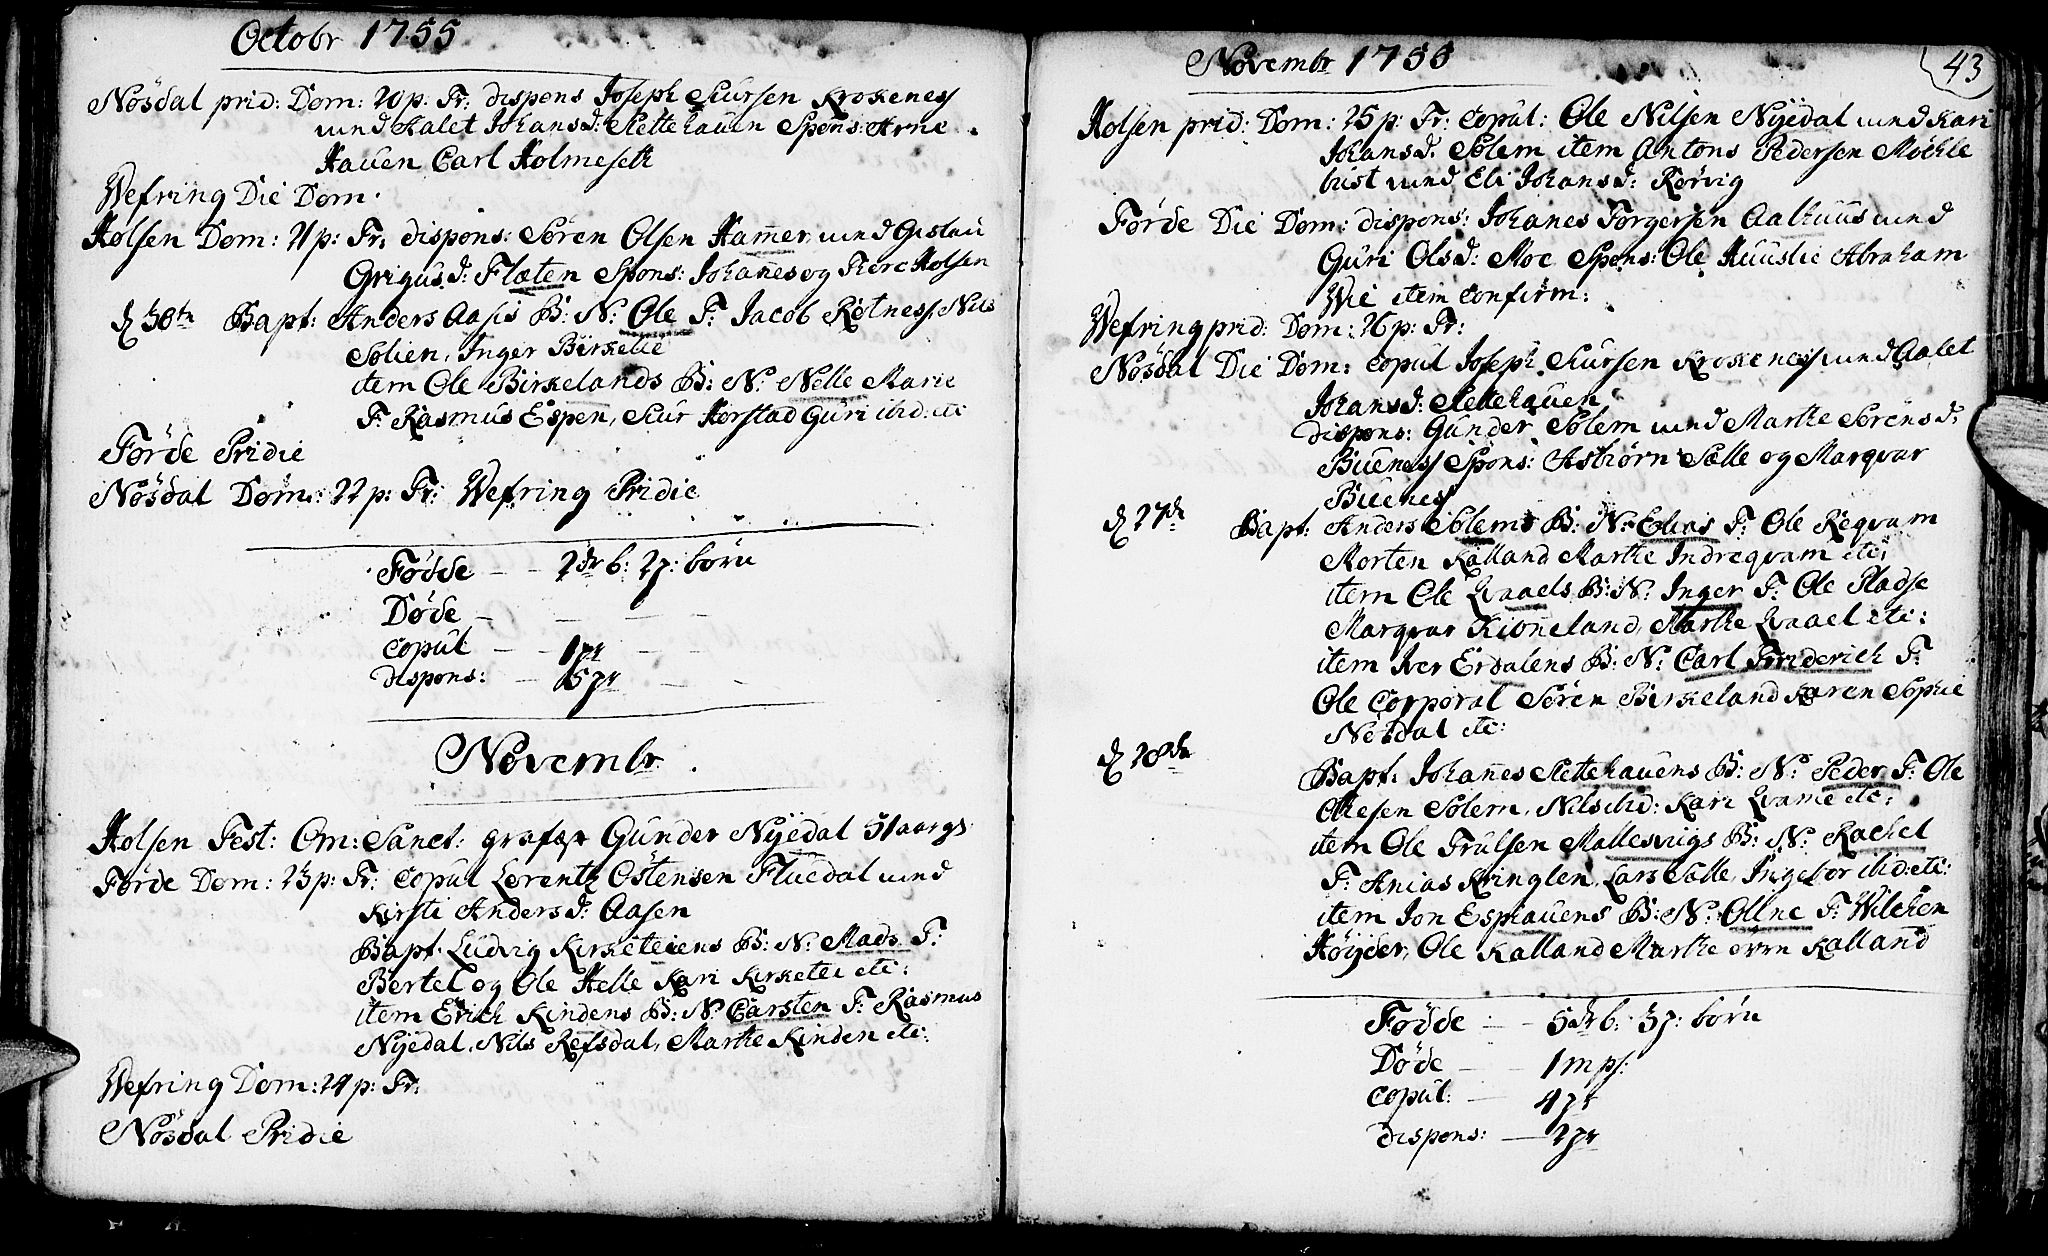 Octobr 1755
Nösdal prid: Dom: 20 p: Tr: dispons Joseph Siursen Krokeness
und Aalet Johansd: Slettehauen Spons: Arne
Hauen Carl Holmeseth
Wefring Die Dom.
Holsen Dom: 21 p: Tr: dispons: Sören Olsen Hamer und Gislau
Grigusd: Flæten Spons: Johanes og Holsen
d 30te Bapt: Anders Aasis B: N: Ole F: Jacob Rotness, Nils
Solien, Inger Birkelie
item Ole Birkelands B: N: Nelle Marie
F: Rasmus Espen, Siur Herstad Guri ibid: etc
Förde Pridie
Nösdal Dom: 22 p: Tr: Wefring Pridie
Födde - - 2 drb: 2 p: börn
Döde - - -
Copul: - - 1 pr -
dispons: - 5 pr - -
Novembr.
Holsen Fest: Om: Sanct: Gunder Nyedal 51 aargl
Förde Dom: 23 p: Tr: Copul Lorentz Östensen Fluedal und
Kirsti Andersd: Aasen
Bapt. Ludvig Kirketeiens B: N: Mads F:
Bertel og Ole Helle Kari Kirketei etc:
item Erich Kindens B: N: Carsten F: Rasmus
Nyedal, Nils Refsdal, Marthe Kinden etc:
Wefring Dom: 24 p: Tr:
Nösdal Pridie
Novembr 1755
43
Holsen prid: Dom: 25 p: Tr: Copul: Ole Nilsen Nyedal und Kari
Johansd: Solem item Antons Pedersen Möckle
bust und Eli Johansd: Rörvig
Förde Die Dom: dispons: Johanes Torgersen Aalhuus und
Guri Olsd: Moe Spons: Ole Huuslie Abraham
Wie item Confirm:
Wefring prid: Dom: 26 p: Tr:
Nösdal Die Dom: Copul Joseph Siursen Krokeness und Aalet
Johansd: Slettehauen
dispons: Gunder Solem und Marthe Sörensd:
Bueness Spons: Asbiörn Sælle og Marqvar
Bueness
d 27de Bapt: Anders Solems B: N: Elias F: Ole Reqvam
Morten Kalland Marthe Indreqvam etc:
item Ole Qvaaels B: N: Inger F: Ole Pladse
Marqvar Kioneland, Marthe Qvaael etc:
item Iver Erdalens B: N: Carl Friderich F:
Ole Corporal Sören Birkeland Karen Sophie
Nösdal etc:
d 28de Bapt: Johanes Slettehauens B: N: Peder F: Ole
Olesen Solem, Nils ibid: Kari Qvame etc:
item Ole Trulsen Mallesvigs B: N: Rachel
F: Anias Kringlen, Lars Sælle, Ingebor ibid: etc:
item Jon Esphauens B: N: Oline F: Wilchen
Höyder, Ole Kalland Marthe övre Kalland
Födde - - 5 drb: 3 p: börn
Döde - - 1 m ps:
Copul: - 4 pr
dispons: - 2 pr